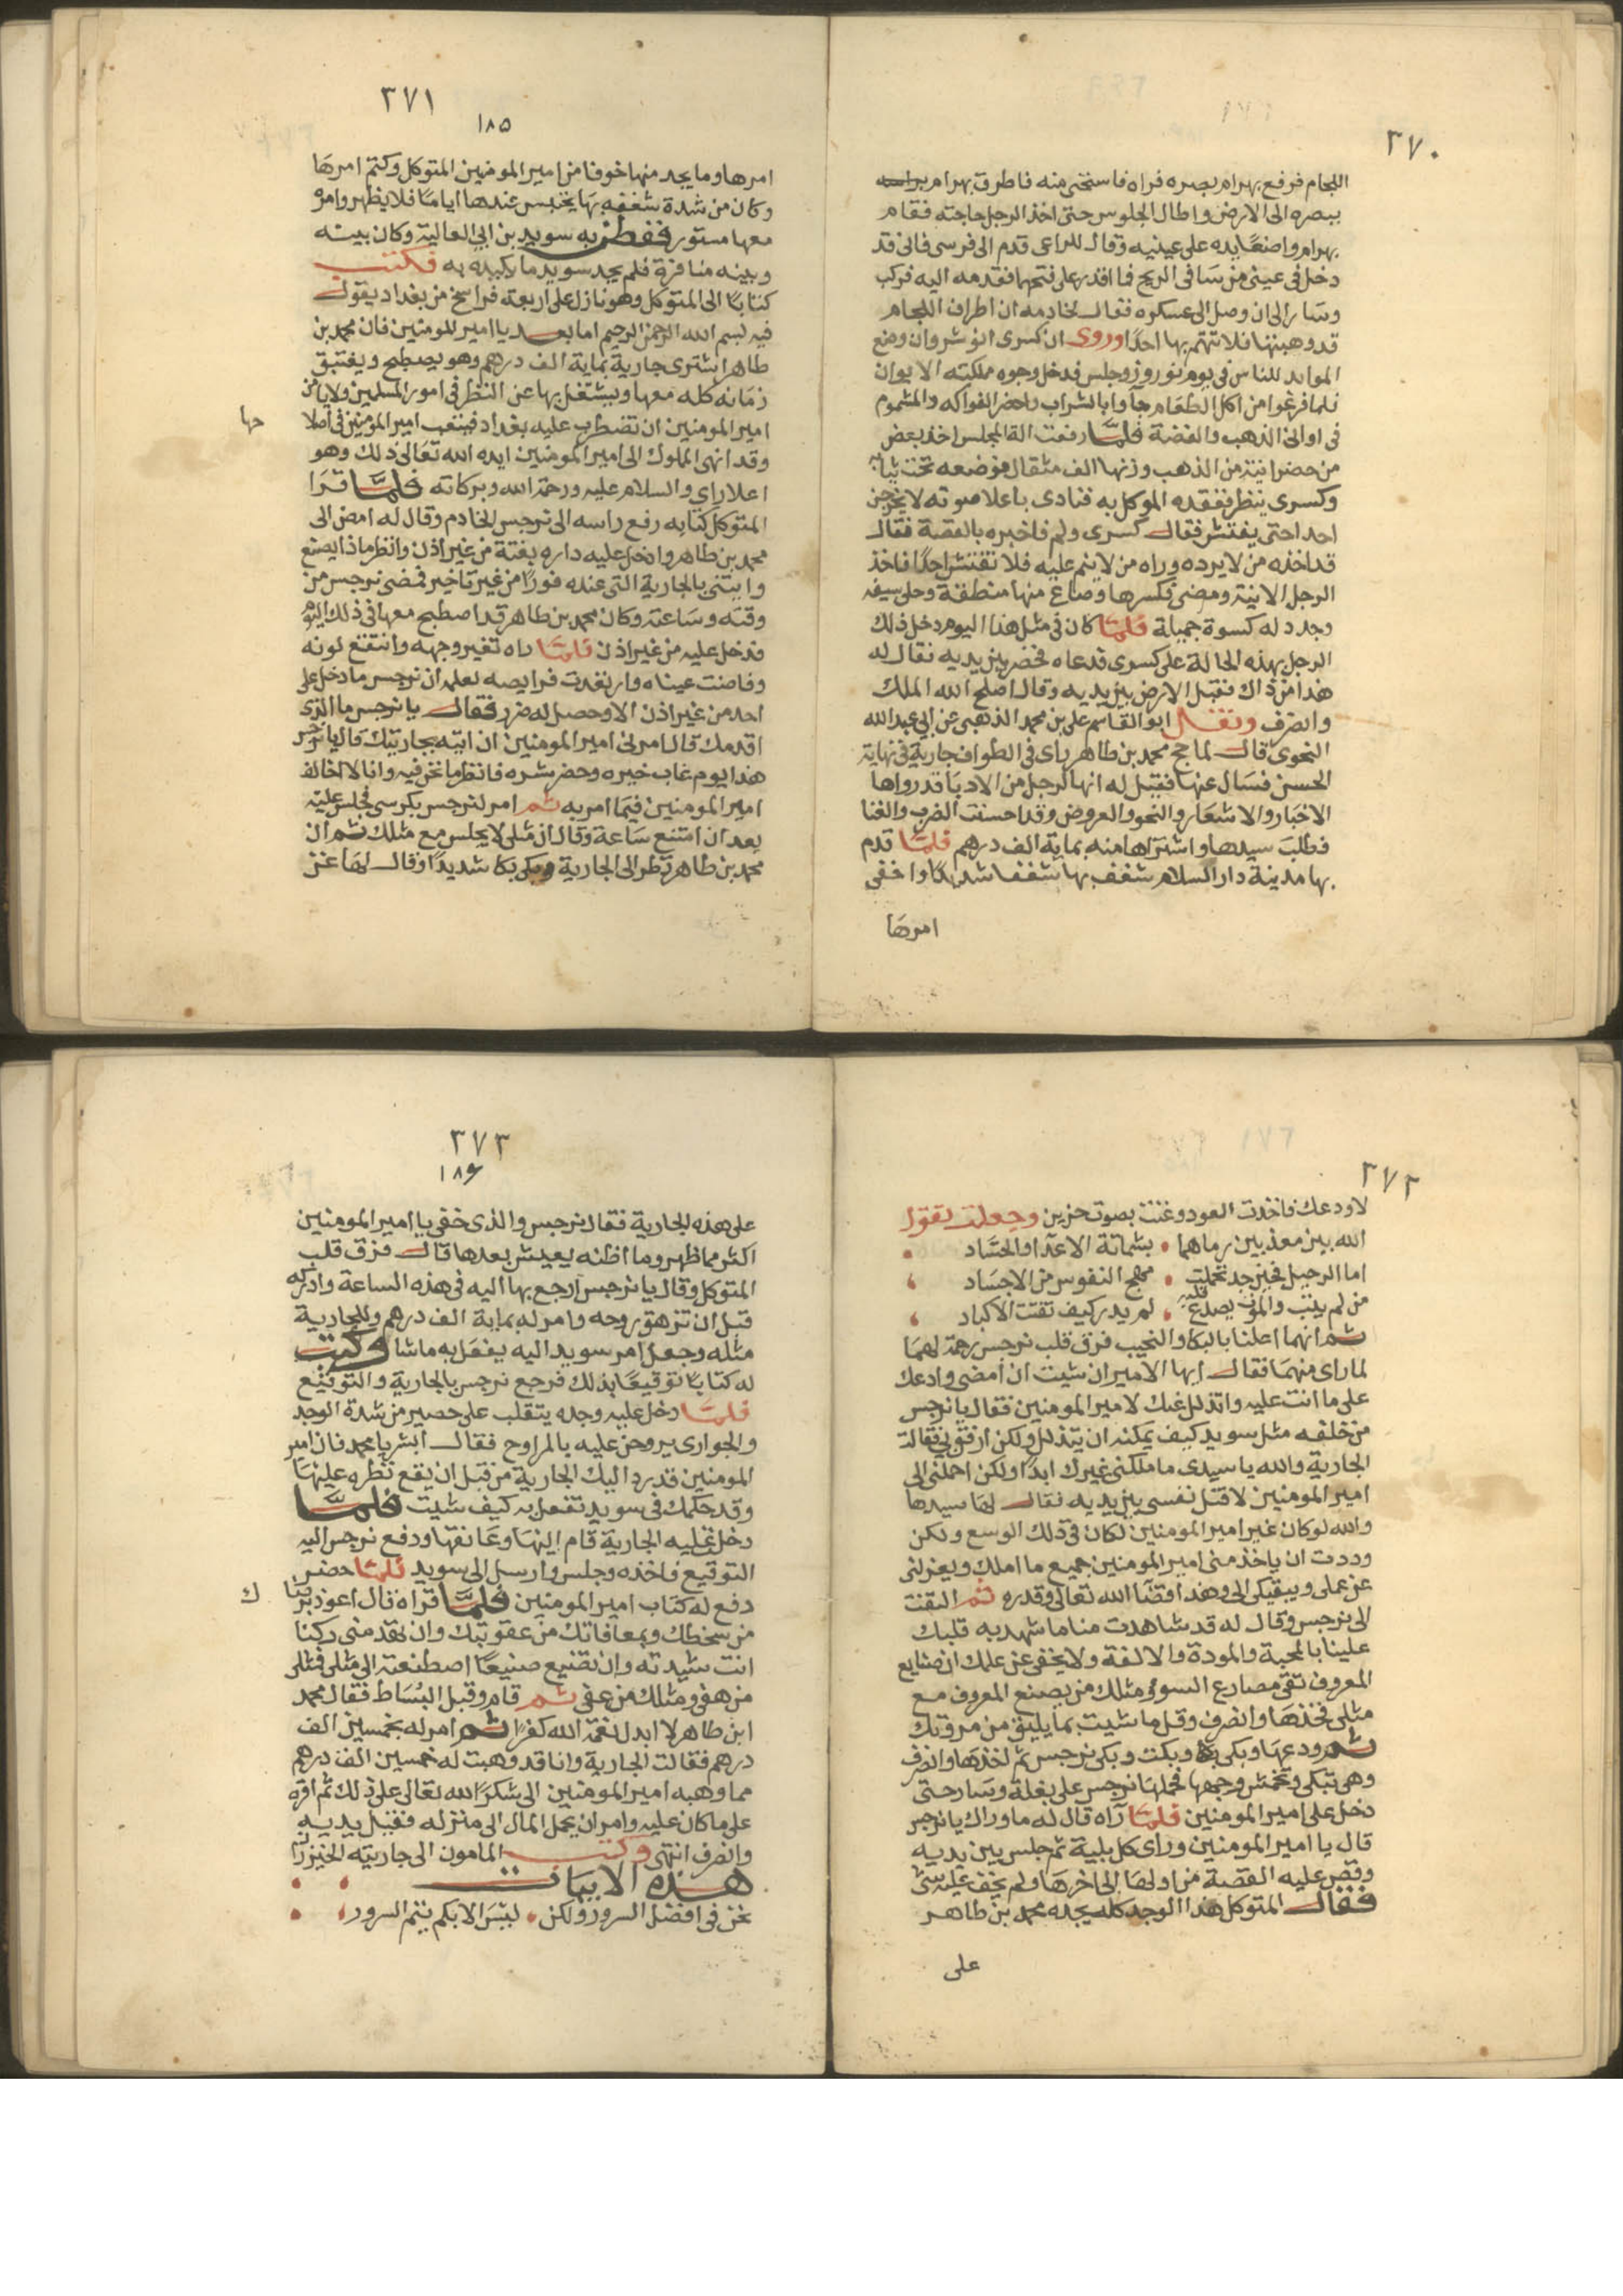 ٣٧٠
اللجام فرفع بهرام بصره فراه فاستحى منه فاطرق بهرام براسه
ببصره الى الارض واطال الجلوس حتى اخذ الرجل حاجته فقام
بهرام واضعًا يده على عينيه وقال للراعى قدم الى فرسى فانى قد
دخل فى عينى من سافى الريح فما اقدر على فتحها فقدمه اليه فركب
وسَار الى ان وصل الى عسكره فقال لخادمه ان اطراف اللجام
قد وهبتها فلا تتهم بها احدًا وروى ان كسرى انوشروان وضع
الموايد للناس فى يوم نوروز وجلس فدخل وجوه مملكته الايوان
فلما فرغوا من اكل الطعَام جآوا بالشراب واحضر الفواكه والمشموم
فى اوانى الذهب والفضة فلمّا رفعت الة المجلس اخذ بعض
من حضر انية من الذهب وزنها الف مثقال فوضعه تحت ثيابه
وكسرى ينظر ففقده الموكل به فنادى باعلا صوته لا يخرجن
احد احتى يفتش فقال كسرى ولم فاخبره بالقصة فقال
قد اخذه من لا يرده وراه من لا ينم عليه فلا تفتش احدًا فاخذ
الرجل الانية ومضى فكسرها وصاغ منها منطقة وحلى سيفه
وجدد له كسوة جميلة فلمّا كان فى مثل هذا اليوم دخل ذلك
الرجل بهذه الحالة على كسرى فدعاه فحضر بين يديه فقال له
هذا من ذاك فقبل الارض بين يديه وقال اصلح الله الملك
وانصرف ونقل ابو القاسم على بن محمد الذهبى عن ابى عبد الله
النحوى قال لما حج محمد بن طاهر راى فى الطواف جارية فى نهاية
الحسن فسَال عنها فقيل له انها لرجل من الادبَا قد رواها
الاخبَار والاشعَار والنحو والعروض وقد احسنت الضرب والغنا
فطلب سيدها واشتراها منه بماية الف درهم فلمّا قدم
بها مدينة دار السلام شغف بها شغفا شديدًا واخفى
امرهَا
٣٧١
١٨٥
امرها وما يجد منها خوفا من امير المومنين المتوكل وكتم امرهَا
وكان من شدة شغفه بهَا يحتبس عندها ايامًا فلا يظهر وامره
معها مستور ففطن به سويد بن ابى العالية وكان بينه
وبينه منافرة فلم يجد سويد ما يكيده به فكتب
كتابًا الى المتوكل وهو نازل على اربعة فراسخ من بغداد يقول
فيه بسم الله الرحمن الرحيم اما بعد يا امير المومنين فان محمد بن
طاهر اشترى جارية بماية الف درهم وهو يصطبح ويغتبق
زمَانه كله معها ويشتغل بها عن النظر فى امور المسلمين ولا يامن
امير المومنين ان تضطرب عليه بغداد فيتعب امير المومنين فى اصلا
حها
وقد انهى المملوك الى امير المومنين ايده الله تعَالى ذلك وهو
اعلا راي والسلام عليه ورحمة الله وبركاته فلمّا قرَا
المتوكل كتابه رفع راسه الى نرجس الخادم وقال له امض الى
محمد بن طاهر وادخل عليه داره بغتة من غير اذن وانظر ماذا يصنع
وايتنى بالجارية التى عنده فورًا من غير تاخير فمضى نرجس من
وقته وسَاعته وكان محمد بن طاهر قد اصطبح معها فى ذلك اليوم
فدخل عليه من غير اذن فلمّا راه تغير وجهه وانتقع لونه
وفاضت عيناه وارتعدت فرايصه لعلمه ان نرجس ما دخل على
احد من غير اذن الا وحصل له ضرر فقال يا نرجس ما الذى
اقدمك قال امرنى امير المومنين ان اتيه بجاريتك قال يا نرجس
هذا يوم غاب خيره وحضر شره فانظر ما نحن فيه وانا لا اخالف
امير المومنين فيمَا امر به ثم امر لنرجس بكرسى فجلس عليه
بعد ان امتنع سَاعة وقال ان مثلى لا يجلس مع مثلك ثم ان
محمد بن طاهر نظر الى الجارية وبكى بكا شديدًا وقال لهَا غنى
٣٧٢
لاودعك فاخذت العود وغنت بصوت حزين وجعلت تقول
الله بين معذبين رماهما • بشماتة الاعدا والحسَّاد
اما الرحيل فحين جد تحملت • مهج النفوس من الاجسَاد
من لم يبت والموت يصدع قلبه • لم يدر كيف تفتت الاكباد
ثم انهما اعلنا بالبكا والنحيب فرق قلب نرجس رحمة لهمَا
لما راى منهمَا فقال ايها الامير ان شيت ان امضى وادعك
على ما انت عليه واتذلل عنك لامير المومنين فقال يا نرجس
من خلفه مثل سويد كيف يمكنه ان يتذلل ولكن ارفق بى فقالت
الجارية والله يا سيدى ما ملكنى غيرك ابدًا ولكن احملنى الى
امير المومنين لاقتل نفسى بين يديه فقال لها سيدها
والله لو كان غير امير المومنين لكان فى ذلك الوسع ولكن
وددت ان ياخذ منى امير المومنين جميع ما املك ويعزلنى
عن عملى ويبقيكى الى وهذا قضَا الله تعالى وقدره ثم التفت
الى نرجس وقال له قد شاهدت منا ما شهد به قلبك
علينا بالمحبة والمودة والالفة ولا يخفى عن علمك ان صنايع
المعروف تقى مصارع السوء ومثلك من يصنع المعروف مع
مثلى فخذهَا وانصرف وقل ما شيت بما يليق من مروتك
ثم ودعهَا وبكى بكا وبكت وبكى نرجس ثم اخذهَا وانصرف
وهى تبكى وتخمش وجهها فحملهَا نرجس على بغلة وسَار حتى
دخل على امير المومنين فلمّا رآه قال له ما وراك يا نرجس
قال يا امير المومنين وراى كل بلية ثم جلس بين يديه
وقص عليه القصة من اولهَا الى اخرهَا ولم يخف عليه شى
فقال المتوكل هذا الوجد كله يجده محمد بن طاهر
على
٣٧٣
١٨٦
على هذه الجارية فقال نرجس والذى خفى يا امير المومنين
اكثر مما ظهر وما اظنه يعيش بعدها قال فرق قلب
المتوكل وقال يا نرجس ارجع بها اليه فى هذه الساعة وادركه
قبل ان تزهق روحه وامر له بماية الف درهم وللجارية
مثله وجعل امر سويد اليه يفعَل به ما شا وكتب
له كتابًا توقيعًا بذلك فرجع نرجس بالجارية والتوقيع
فلمّا دخل عليه وجده يتقلب على حصير من شدة الوجد
والجوارى يروحن عليه بالمراوح فقال ابشر يا محمد فان امير
المومنين قد رد اليك الجارية من قبل ان يقع نظره عليهَا
وقد حكمك فى سويد تفعل به كيف شيت فلمّا
دخل عليه الجارية قام اليهَا وعَانقها ودفع نرجس اليه
التوقيع فاخذه وجلس وارسل الى سويد فلمّا حضر
دفع له كتاب امير المومنين فلمّا قراه قال اعوذ برضا
ك
من سخطك وبمعافاتك من عقوبتك وان تهدمنى ركنا
انت شيدته وان تضيع صنيعًا اصطنعته الى مثلى فمثلى
من هفى ومثلك من عفى ثم قام وقبل البسَاط فقال محمد
ابن طاهر لا ابدل نعمة الله كفرًا ثم امر له بخمسين الف
درهم فقالت الجارية وانا قد وهبت له خمسين الف درهم
مما وهبه امير المومنين الى شكرًا لله تعالى على ذلك ثم اقره
على ما كان عليه وامر ان يحمل المال الى منزله فقبل يديه
وانصرف انتهى وكتب المامون الى جاريته الخيزران
هذه الابيات
نحن فى افضل السرور ولكن • ليس الا بكم يتم السرور